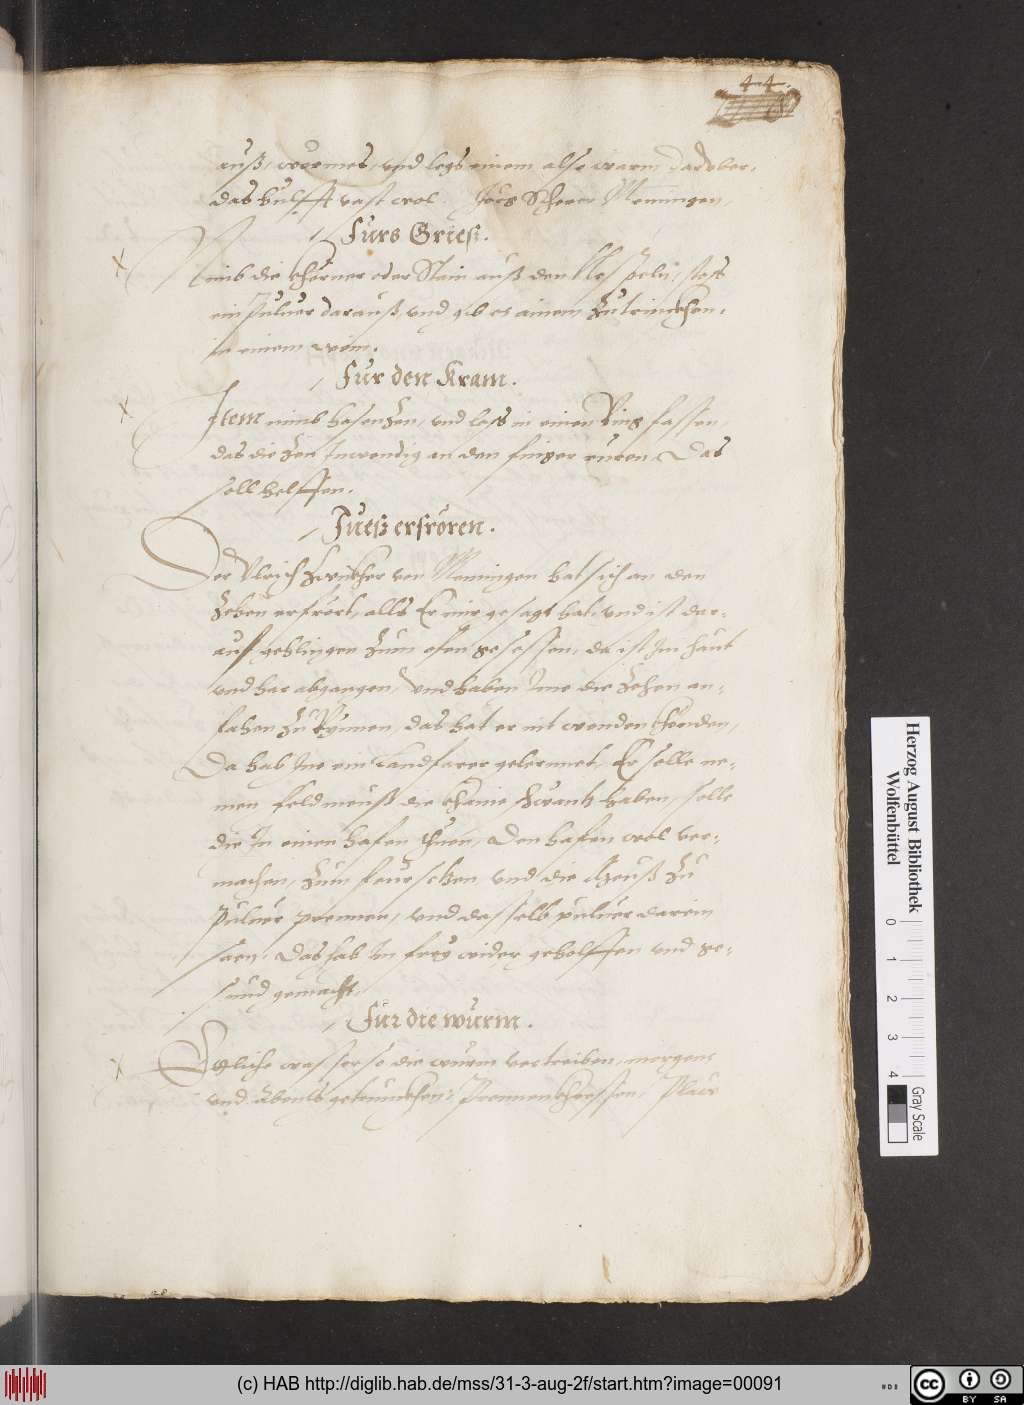 44.
auß, wermes, vnd legs einem also warm darvber,
das hulfft vast wol. Jörg Scherer Memingen,
Furs Grieß.
Nimb die kherner oder Stain auß den Nespeln, stoß
ein Puluer darauß, vnd gib es ainem zu trinckhen,
in einem wein.
Fur den Kram.
Item nimb hasen Zen, vnd laß in einen Ring fassen,
das die Zen Inwendig an den finger ruren. Das
soll helffen.
Fueß erfroren.
Der Vlrich von Memingen hat sich an den
Zehen erfrört, alls Er mir gesagt hat, vnd ist dar-
auf gehlingen zum ofen gesessen, da ist Im haut
vnd har abgangen, vnd haben Ime die Zehen an-
fahen zu Rynnen, das hat er nit wenden khonden,
Da hab Ine ein Landfarer gelernnet, Er solle ne-
men feldmeuß die khainn schwantz haben, solle
die In einen hafen thuen, Den hafen wol ver-
machen, zum feur setzen vnd die Meuß zu
Puluer prennen, vnd dasselb puluer darein
saen, Das hab In frey wider geholffen vnd ge-
sund gemacht.
Fur die wurm.
Etliche wasser so die wurm vertreiben, morgens
vnd Abents getrunckhen, Prunnenkhressen, Plaw
Herzog August Bibliothek
Wolfenbüttel
0 1 2 3 4
Gray Scale
(c) HAB http://diglib.hab.de/mss/31-3-aug-2f/start.htm?image=00091
cc BY SA